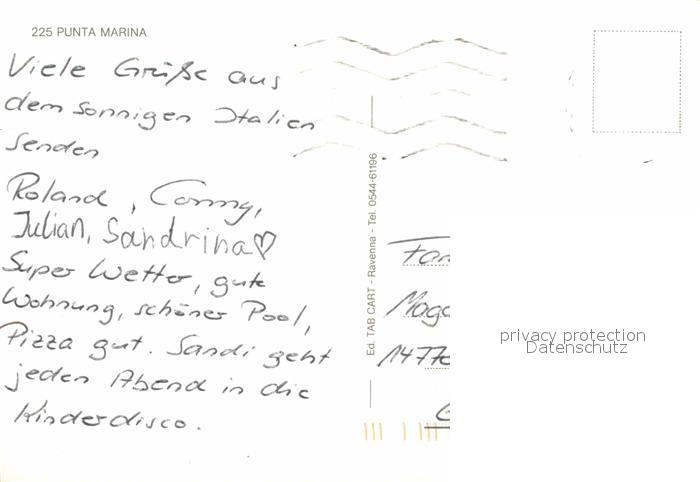 225 PUNTA MARINA
Viele Grüße aus
dem sonnigen Italien
senden
Roland, Conny,
Julian, Sandrina♡
Super Wetter, gute
Wohnung, schöner Pool,
Pizza gut. Sandi geht
jeden Abend in die
Kinderdisco.
Ed. TAB CART - Ravenna - Tel. 0544-61196
Fam
privacy protection
Datenschutz